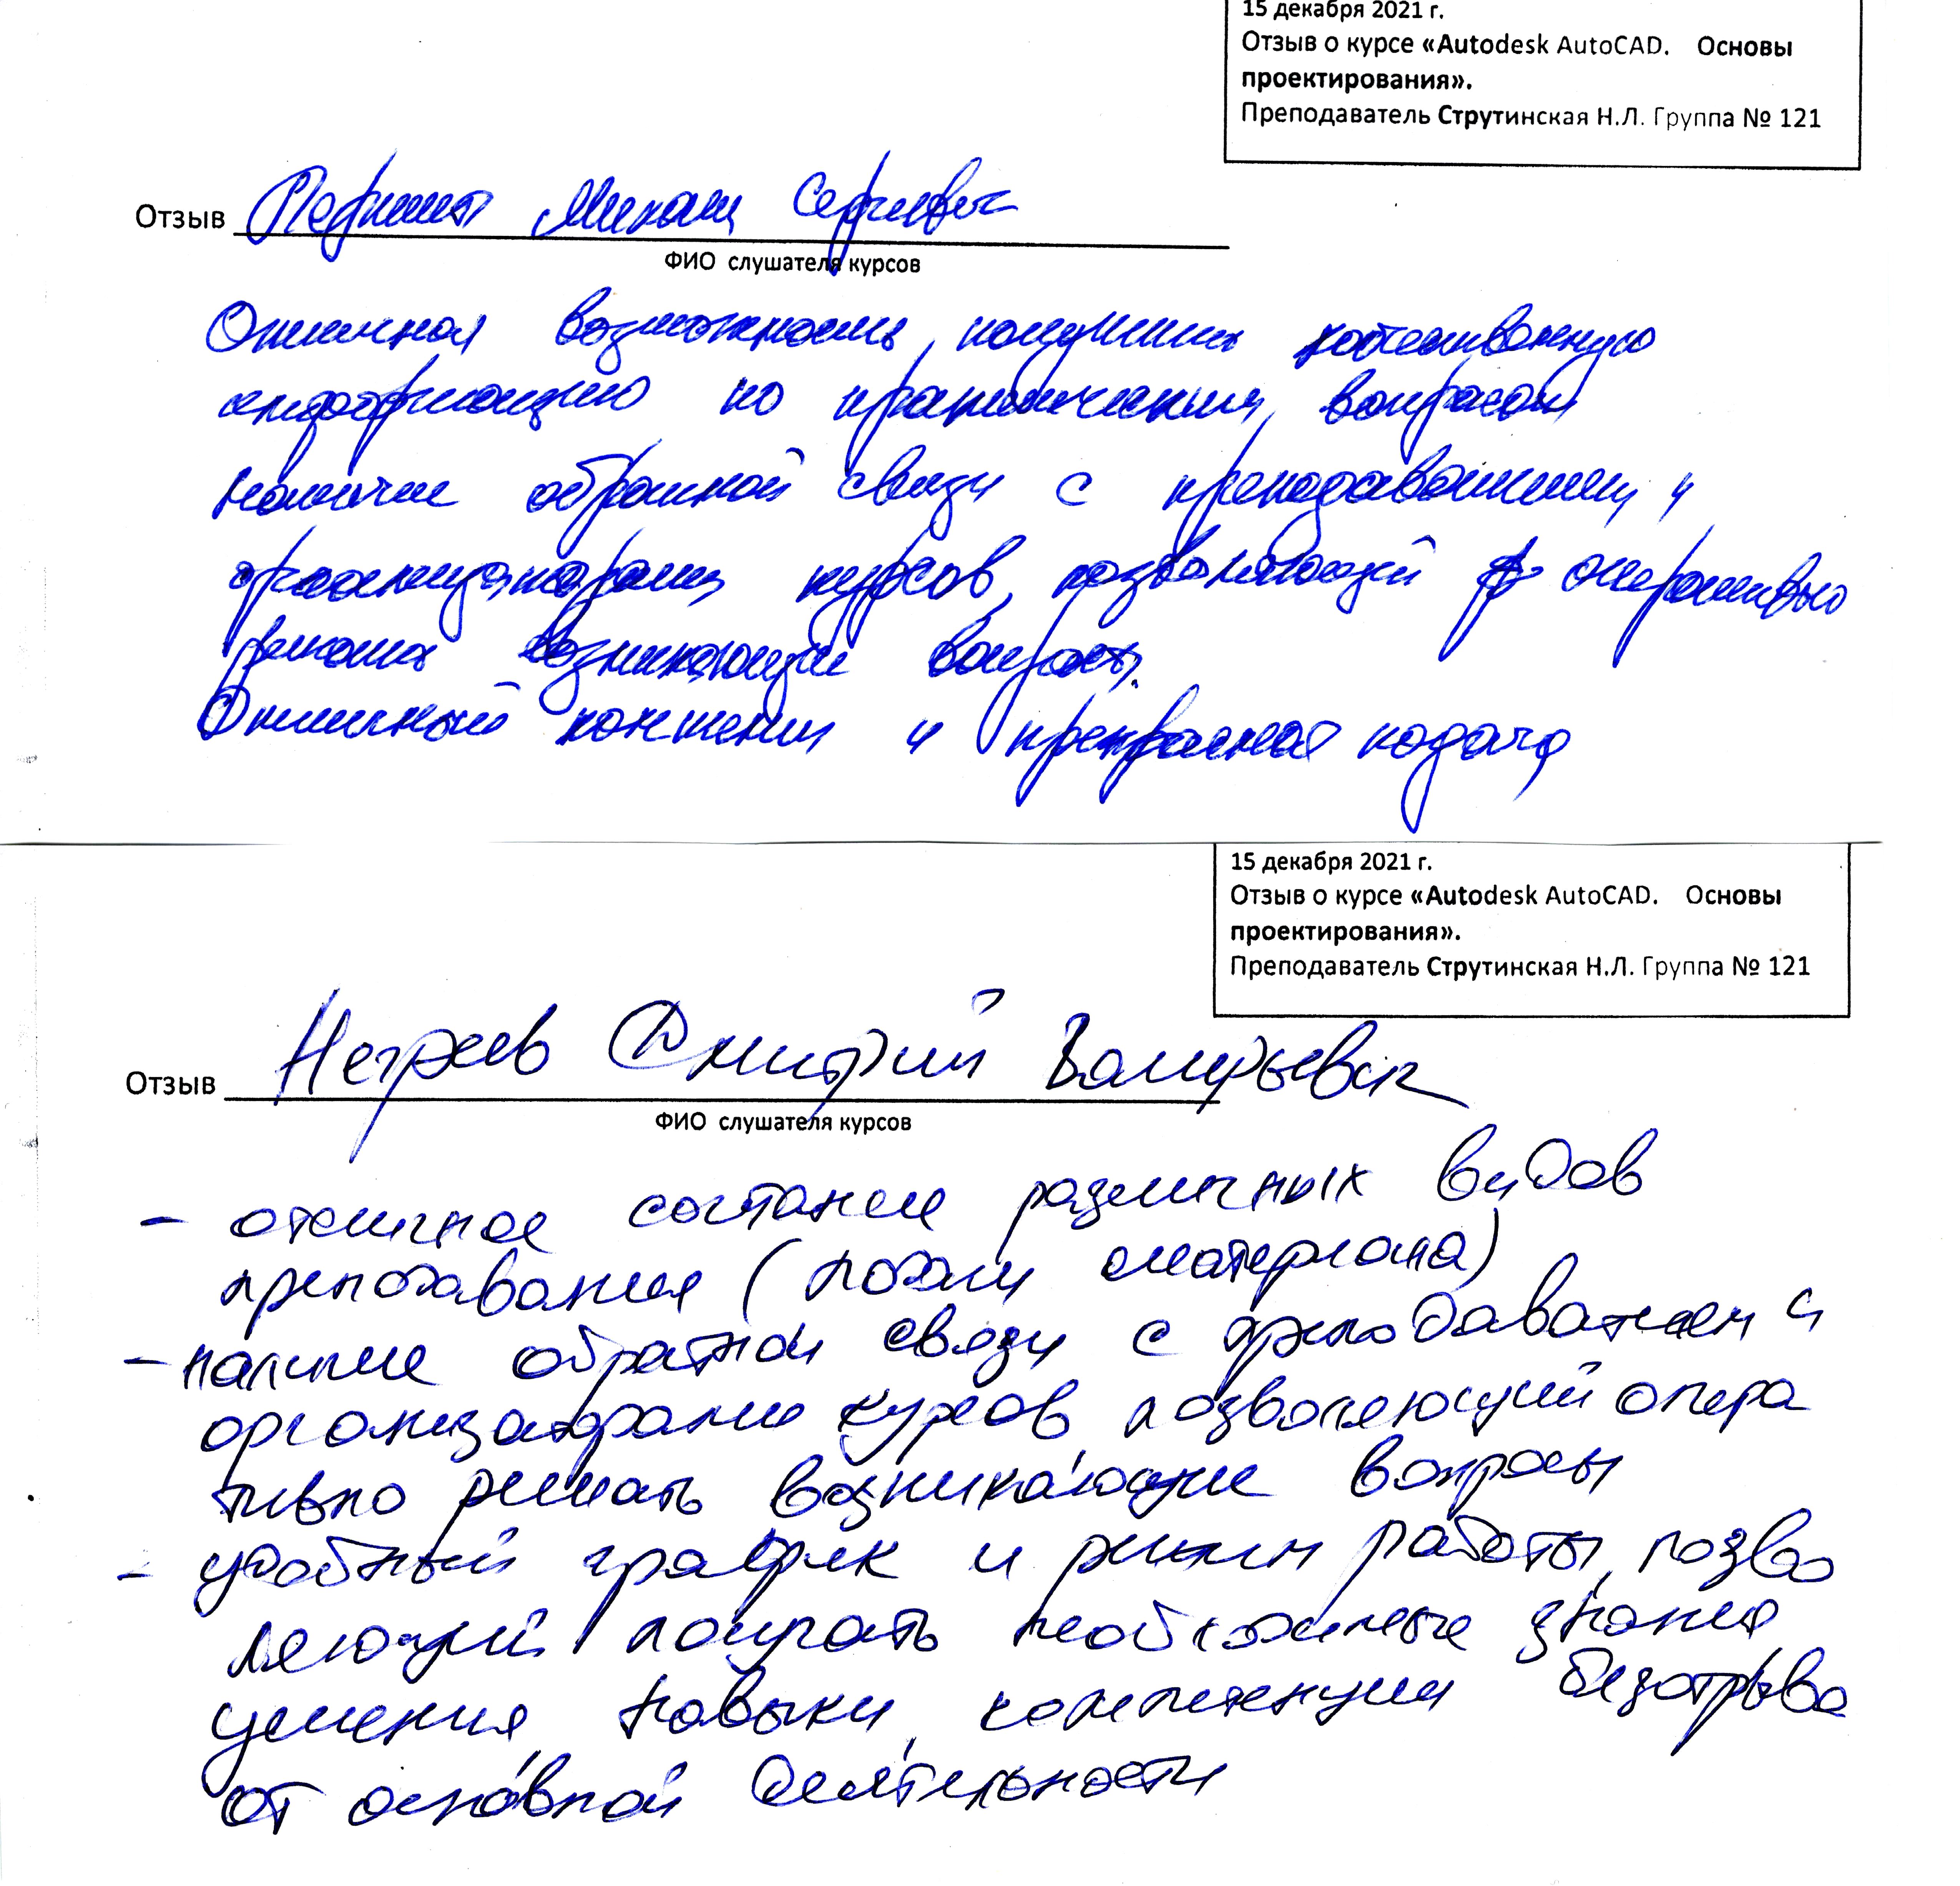 15 декабря 2021 г.
Отзыв о курсе «Autodesk AutoCAD. Основы
проектирования».
Преподаватель Струтинская Н.Л. Группа № 121
Отзыв Михаил Сергеевич
ФИО слушателя курсов
Отличная возможность получить качественную
информацию по практическим вопросам
Наличие обратной связи с преподавателем и
организаторами курсов, позволяющей оперативно
решать возникающие вопросы.
Отличный контент и прекрасная подача
15 декабря 2021 г.
Отзыв о курсе «Autodesk AutoCAD. Основы
проектирования».
Преподаватель Струтинская Н.Л. Группа № 121
Отзыв Негреев Дмитрий Валерьевич
ФИО слушателя курсов
- отличное сочетание различных видов
преподавания (подачи материала)
- наличие обратной связи с преподавателем и
организаторами курсов позволяющий опера
тивно решать возникающие вопросы
- удобный график и режим работы, позво
ляющий получать необходимые знания
умения навыки, компетенции без отрыва
от основной деятельности